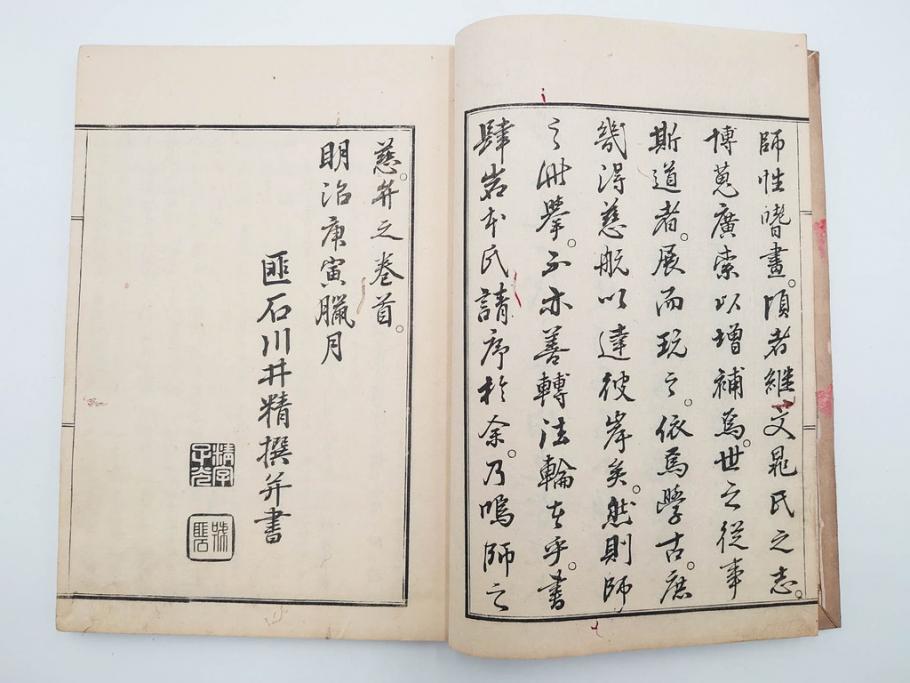 師性嗜畫。頃者継文晁氏之志。
博蒐廣索以増補焉。世之從事
斯道者。展而玩之。依焉學古。庶
幾得慈航以達彼岸矣。然則師
之此擧。不亦善轉法輪者乎。書
肆岩本氏請序於余。乃鳴師之
慈。弁之巻首。
明治庚寅臘月
匪石川井精撰并書